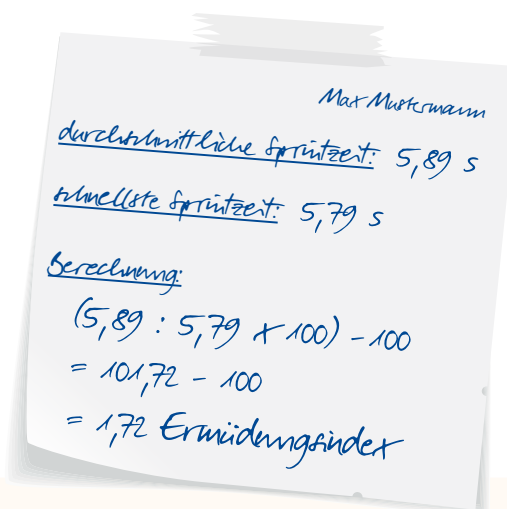 Max Mustermann
durchschnittliche Sprintzeit: 5,89 s
schnellste Sprintzeit: 5,79 s
Berechnung:
(5,89 : 5,79 x 100) - 100
= 101,72 - 100
= 1,72 Ermüdungsindex